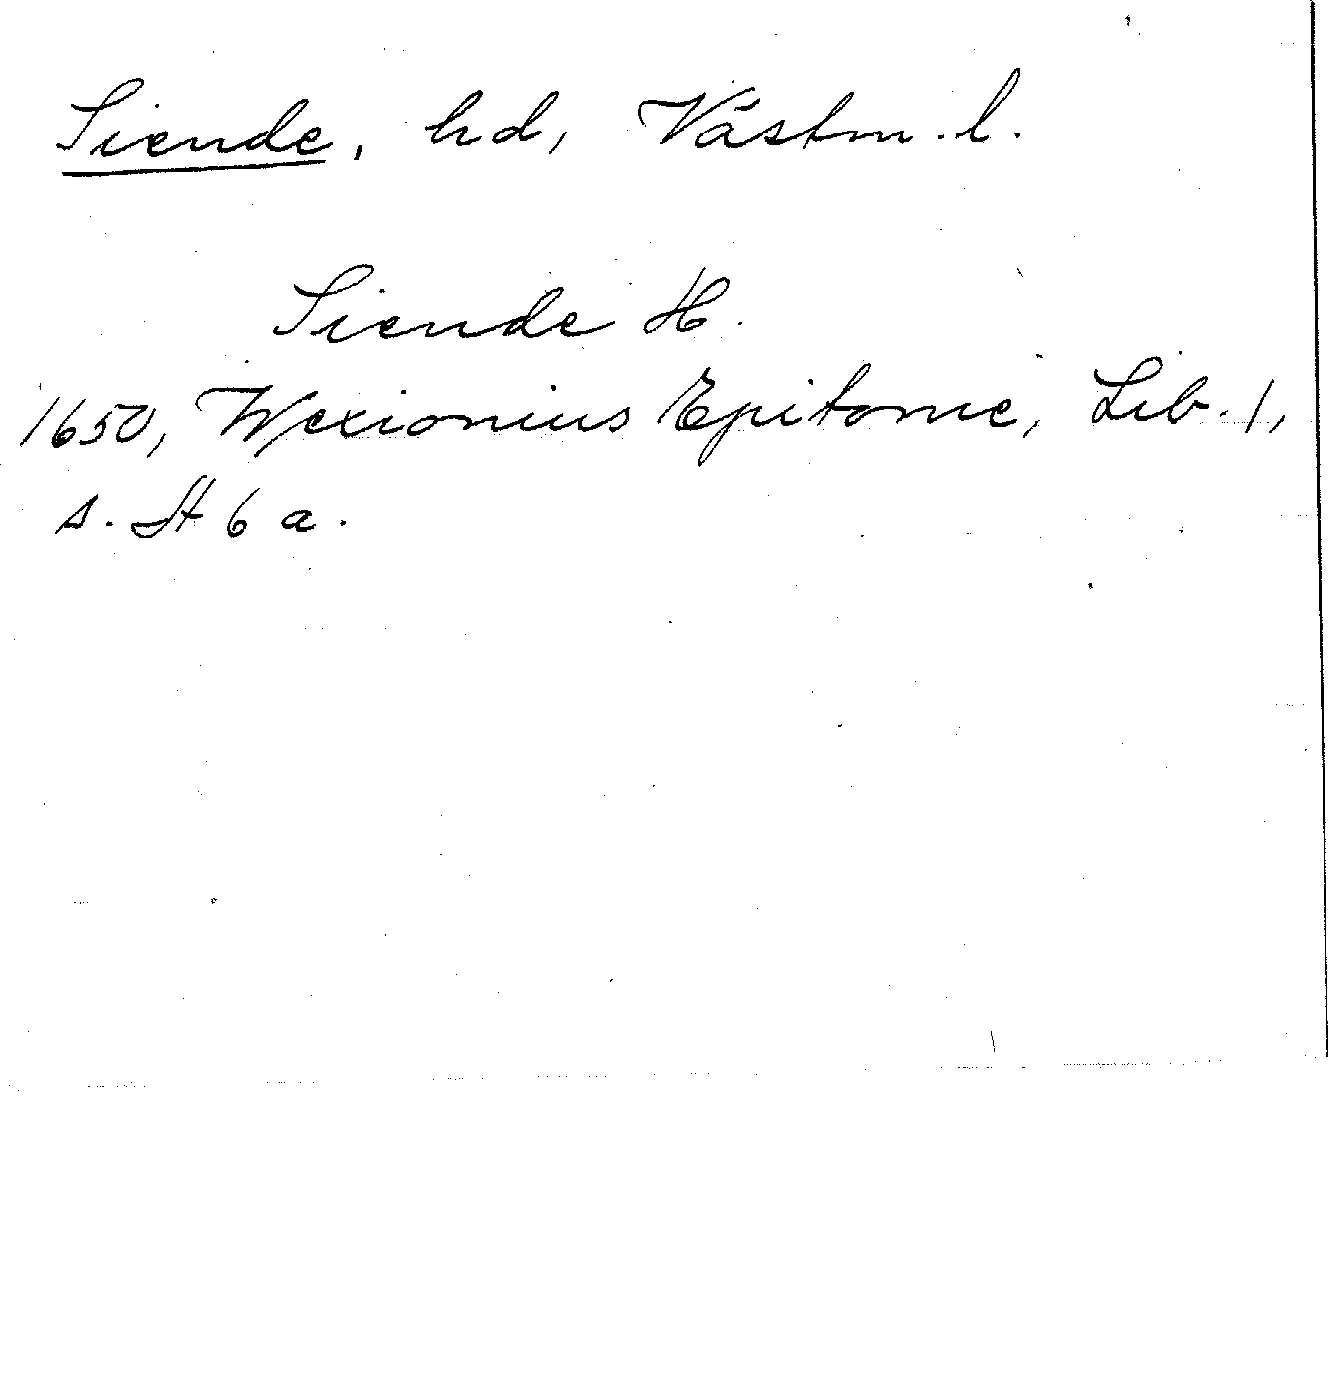 Siende, hd, Västm. l.
Siende H.
1650, Wexionius Epitome, Lib. 1,
s. H 6 a.